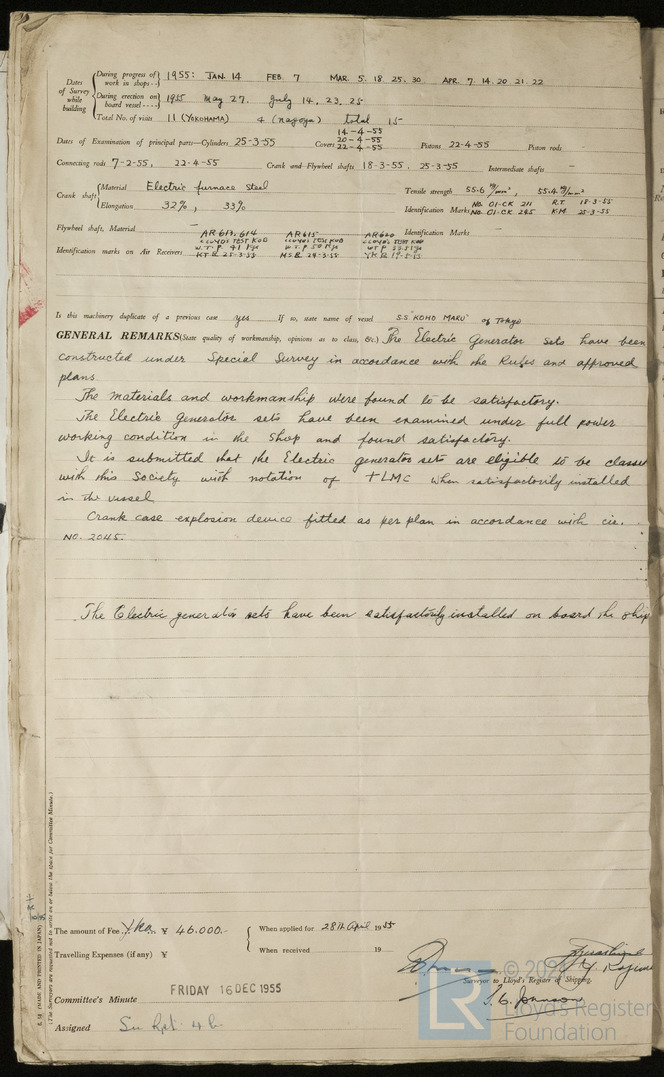 Dates of Survey while building
During progress of work in shops - - 1955: JAN. 14 FEB. 7 MAR. 5. 18. 25. 30 APR. 7. 14. 20. 21. 22
During erection on board vessel - - - 1955 May 27. July 14, 23, 25
Total No. of visits 11 (YOKOHAMA) 4 (nagoya) total 15
Dates of Examination of principal parts—Cylinders 25-3-55 Covers 14-4-55 20-4-55 22-4-55 Pistons 22-4-55 Piston rods –
Connecting rods 7-2-55, 22-4-55 Crank and Flywheel shafts 18-3-55. 25-3-55 Intermediate shafts –
Crank shaft Material Electric furnace Steel Tensile strength 55.6 kg/mm², 55.4 kg/mm²
Elongation 32%, 33% Identification Marks NO. 01-CK 211 R.T. 18-3-55
NO. 01-CK 245 K.M. 25-3-55
Flywheel shaft, Material – Identification Marks –
Identification marks on Air Receivers
AR613.614 AR615 AR620
LLOYDS TEST LLOYDS TEST LLOYDS TEST
W.T.P. 41 W.T.P 50 WT P
25-3-55 24-3-55
Is this machinery duplicate of a previous case yes If so, state name of vessel S.S "KOHO MARU" of Tokyo
GENERAL REMARKS (State quality of workmanship, opinions as to class, &c.) The Electric Generator sets have been
constructed under Special Survey in accordance with the Rules and approved
plans
The materials and workmanship were found to be satisfactory.
The Electric Generator sets have been examined under full power
working condition in the Shop and found satisfactory.
It is submitted that the Electric generator sets are eligible to be classed
with this Society with notation of +LMC when satisfactorily installed
in the vessel
Crank case explosion device fitted as per plan in accordance with cir.
NO. 2045.
The Electric generator sets have been satisfactorily installed on board the ship
The amount of Fee ¥ 46.000.- When applied for 28th April 1955
Travelling Expenses (if any) ¥ When received 19
Surveyor to Lloyd's Register of Shipping.
Committee's Minute FRIDAY 16 DEC 1955
S. G. Johnson
Assigned See Rpt. 4 b.
(MADE AND PRINTED IN JAPAN)
(The Surveyors are requested not to write on or below the space for Committee Minute.)
LR
Lloyd's Register
Foundation